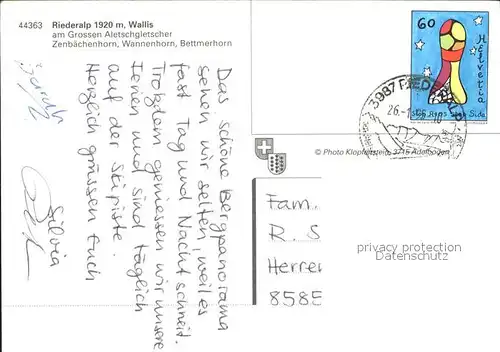 44363 Riederalp 1920 m, Wallis
am Grossen Aletschgletscher
Zenbächenhorn, Wannenhorn, Bettmerhorn
Das schöne Bergpanorama
sehen wir selten, weil es
fast Tag und Nacht schneit.
Trozdem geniessen wir unsere
Ferien und sind täglich
auf der Skipiste.
Herzlich grüssen Euch
Silvia
Sarah
60
Helvetia
Stop Aids
3987 RIEDERALP
26.-1.
© Photo Klopfenstein, 3715 Adelboden
Fam.
R. S
Herrer
8585
privacy protection
Datenschutz